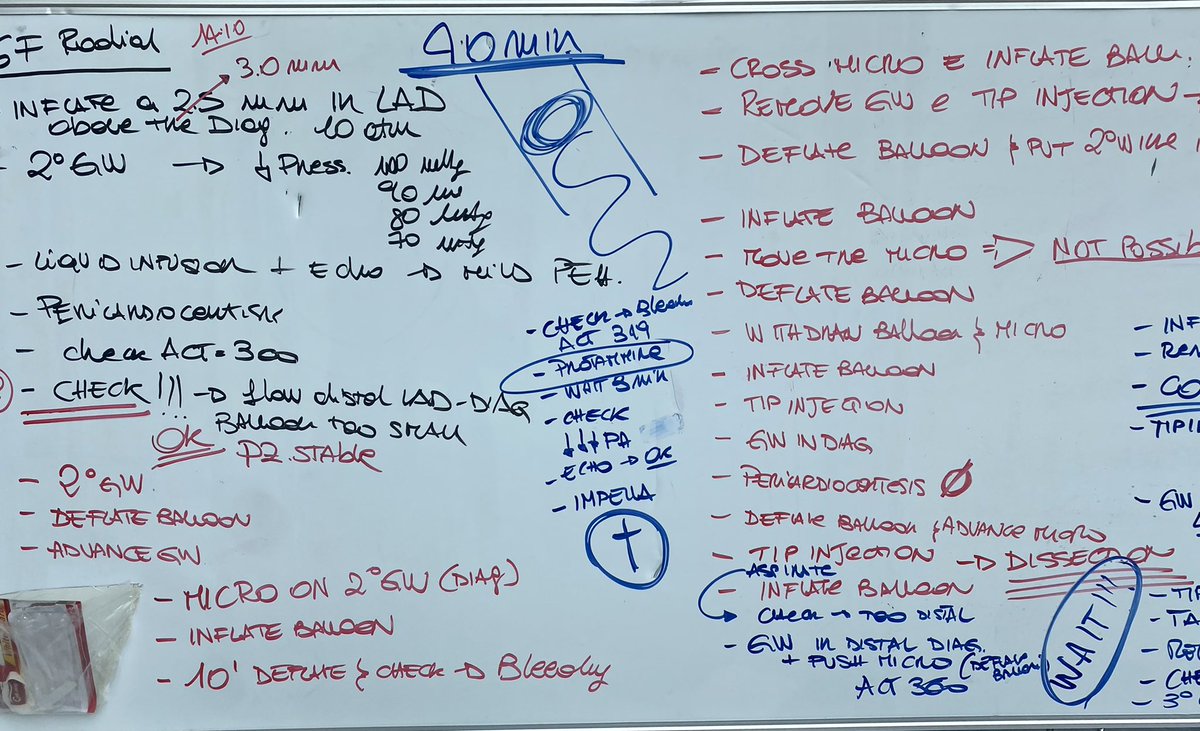 6F Radial
14:10
3.0 mm
INFLATE a 2.5 mm IN LAD
above the Diag. 10 atm
2° GW → ↓ Press. 100 mmHg
90 mm
80 mmHg
70 mmHg
- LIQUID INFUSION + Echo → MILD PEff.
- PERICARDIOCENTESIS
- check ACT = 300
- CHECK !!! → flow distal LAD-DIAG
BALLOON TOO SMALL
OK
PZ. STABLE
- 2° GW
- DEFLATE BALLOON
- ADVANCE GW
- MICRO ON 2° GW (DIAG)
- INFLATE BALLOON
- 10' DEFLATE & CHECK → Bleeding
40 min
- CHECK → Bleeding
ACT 349
- PROTAMINE
- WAIT 3 MIN
- CHECK
↓↓↓ PA
- ECHO → OK
- IMPELLA
†
- CROSS MICRO E INFLATE BALL.
- REMOVE GW e TIP INJECTION →
- DEFLATE BALLOON & PUT 2° WIRE
- INFLATE BALLOON
- MOVE THE MICRO => NOT POSSIB
- DEFLATE BALLOON
- WITHDRAW BALLOON & MICRO
- INFLATE BALLOON
- TIP INJECTION
- GW IN DIAG
- PERICARDIOCENTESIS Ø
- DEFLATE BALLOON & ADVANCE MICRO
- TIP INJECTION → DISSECTION
ASPIRATE
- INFLATE BALLOON
CHECK → TOO DISTAL
- GW IN DISTAL DIAG.
+ PUSH MICRO (DEFLATE BALLOON)
ACT 360
WAIT!!!
- INF
- REM
- CO
- TIP I
- GW
- TIP
- TA
- RE
- CHE
- 3° G